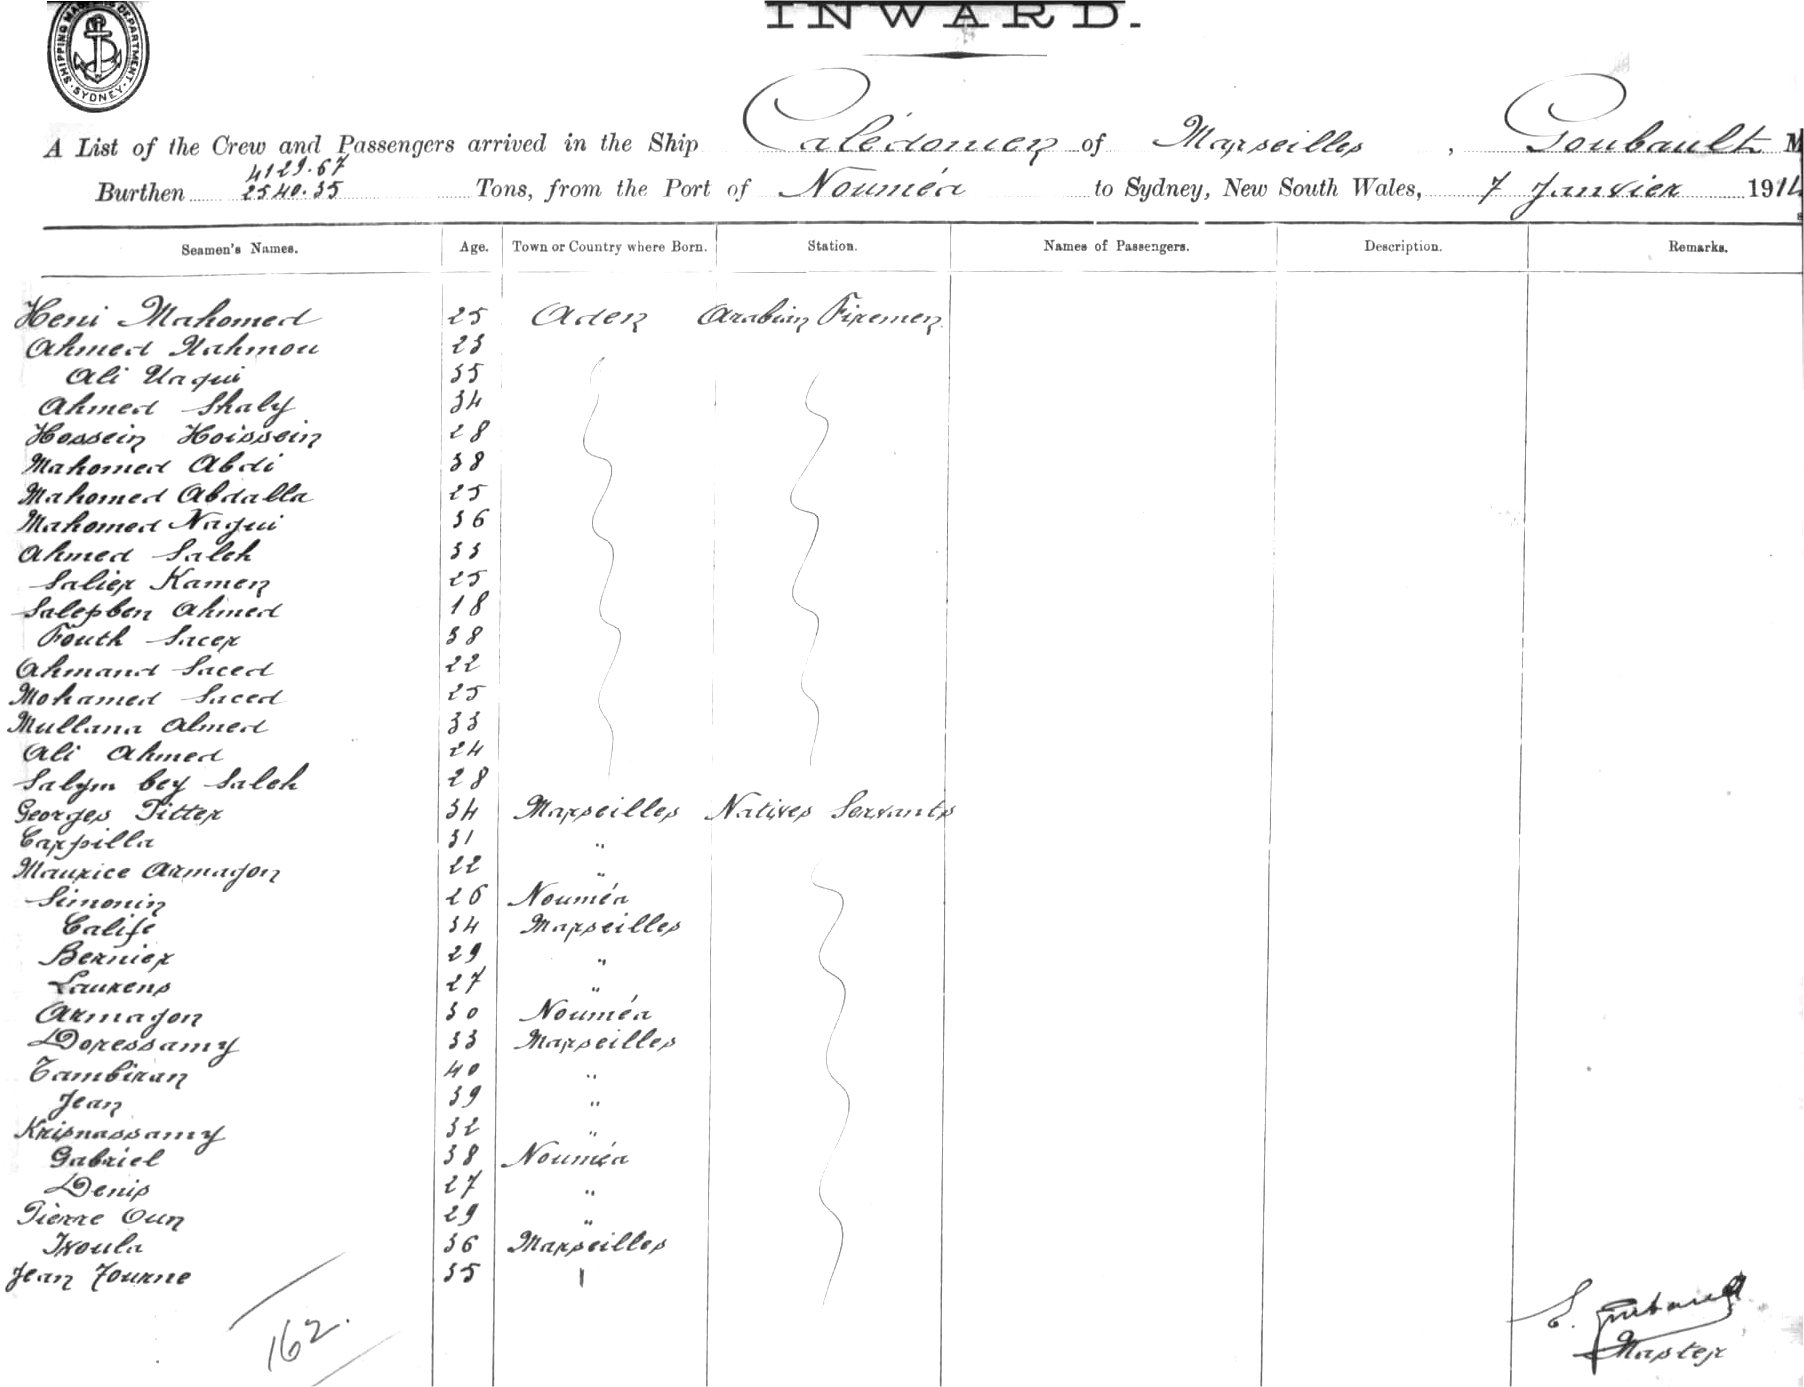 SHIPPING MASTER'S DEPARTMENT · SYDNEY ·
INWARD.
A List of the Crew and Passengers arrived in the Ship Calédonien of Marseilles, Goubault M
4129.67
Burthen 2540.35 Tons, from the Port of Nouméa to Sydney, New South Wales, 7 Janvier 1914
Seamen's Names. Age. Town or Country where Born. Station. Names of Passengers. Description. Remarks.
Heni Mahomed 25 Aden Arabian Firemen
Ahmed Mahmou 23
Ali Naqui 35
Ahmed Shaly 34
Hossein Hoissein 28
Mahomed Abdi 38
Mahomed Abdalla 25
Mahomed Nagui 36
Ahmed Saleh 33
Salier Kamen 25
Salepben Ahmed 18
Fouth Sacer 38
Ahmand Saced 22
Mohamed Saced 25
Mullana Almed 33
Ali Ahmed 24
Salym bey Saleh 28
Georges Titter 34 Marseilles Natives Servants
Carpilla 31 "
Maurice Armagon 22 "
Simonin 26 Nouméa
Calife 34 Marseilles
Bernier 29 "
Laurens 27 "
Armagon 30 Nouméa
Doressamy 33 Marseilles
Tambiran 40 "
Jean 39 "
Krisnassamy 32 "
Gabriel 38 Nouméa
Denis 27 "
Pierre Oun 29 "
Ivoula 36 Marseilles
Jean Fourne 35
162.
E. Goubault
Master